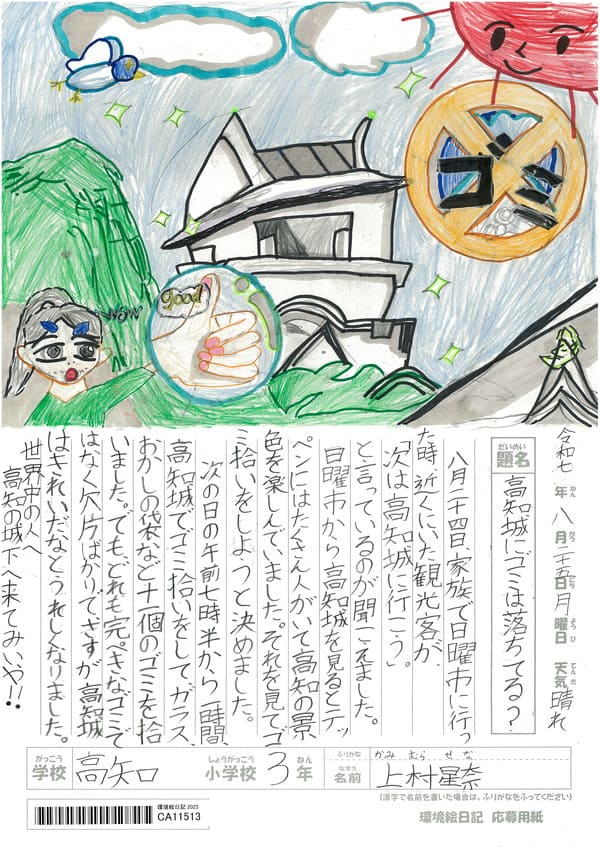 ゴミ
good
wow
令和七年八月二十五日月曜日 天気 晴れ
ねん がつ にち ようび てんき
だいめい
題名 高知城にゴミは落ちてる？
八月二十四日、家族で日曜市に行っ
た時、近くにいた観光客が、
「次は高知城に行こう。」
と言っているのが聞こえました。
日曜市から高知城を見るとテッ
ペンにはたくさん人がいて高知の景
色を楽しんでいました。それを見てゴ
ミ拾いをしようと決めました。
次の日の午前七時半から一時間、
高知城でゴミ拾いをして、ガラス、
おかしの袋など十一個のゴミを拾
いました。でもどれも完ぺきなゴミで
はなく欠片ばかりでさすが高知城
はきれいだなとうれしくなりました。
世界中の人へ
高知の城下へ来てみいや!!
がっこう しょうがっこう ねん ふりがな かみむら せな
学校 高知 小学校 3年 なまえ 名前 上村星奈
(漢字で名前を書いた場合は、ふりがなをふってください)
環境絵日記 2025
CA11513
環境絵日記 応募用紙